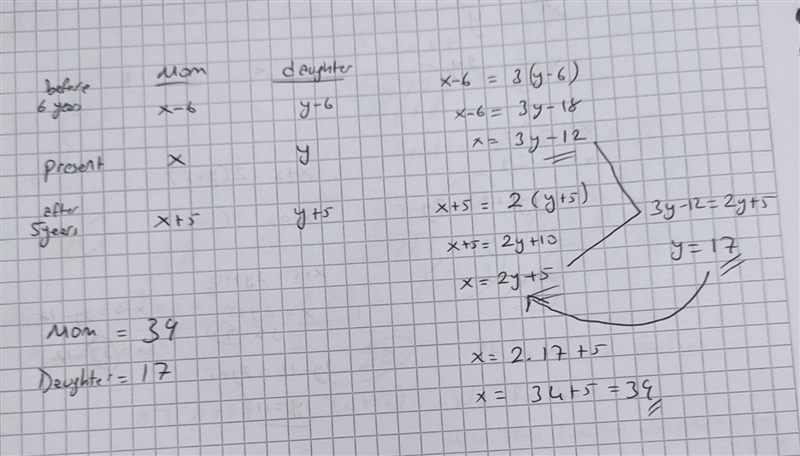 Mom daughter
before
6 years x-6 y-6
present x y
after
5years x+5 y+5
Mom = 39
Daughter = 17
x-6 = 3(y-6)
x-6 = 3y-18
x = 3y-12
x+5 = 2(y+5)
x+5 = 2y+10
x = 2y+5
3y-12=2y+5
y = 17
x = 2.17+5
x = 34+5=39